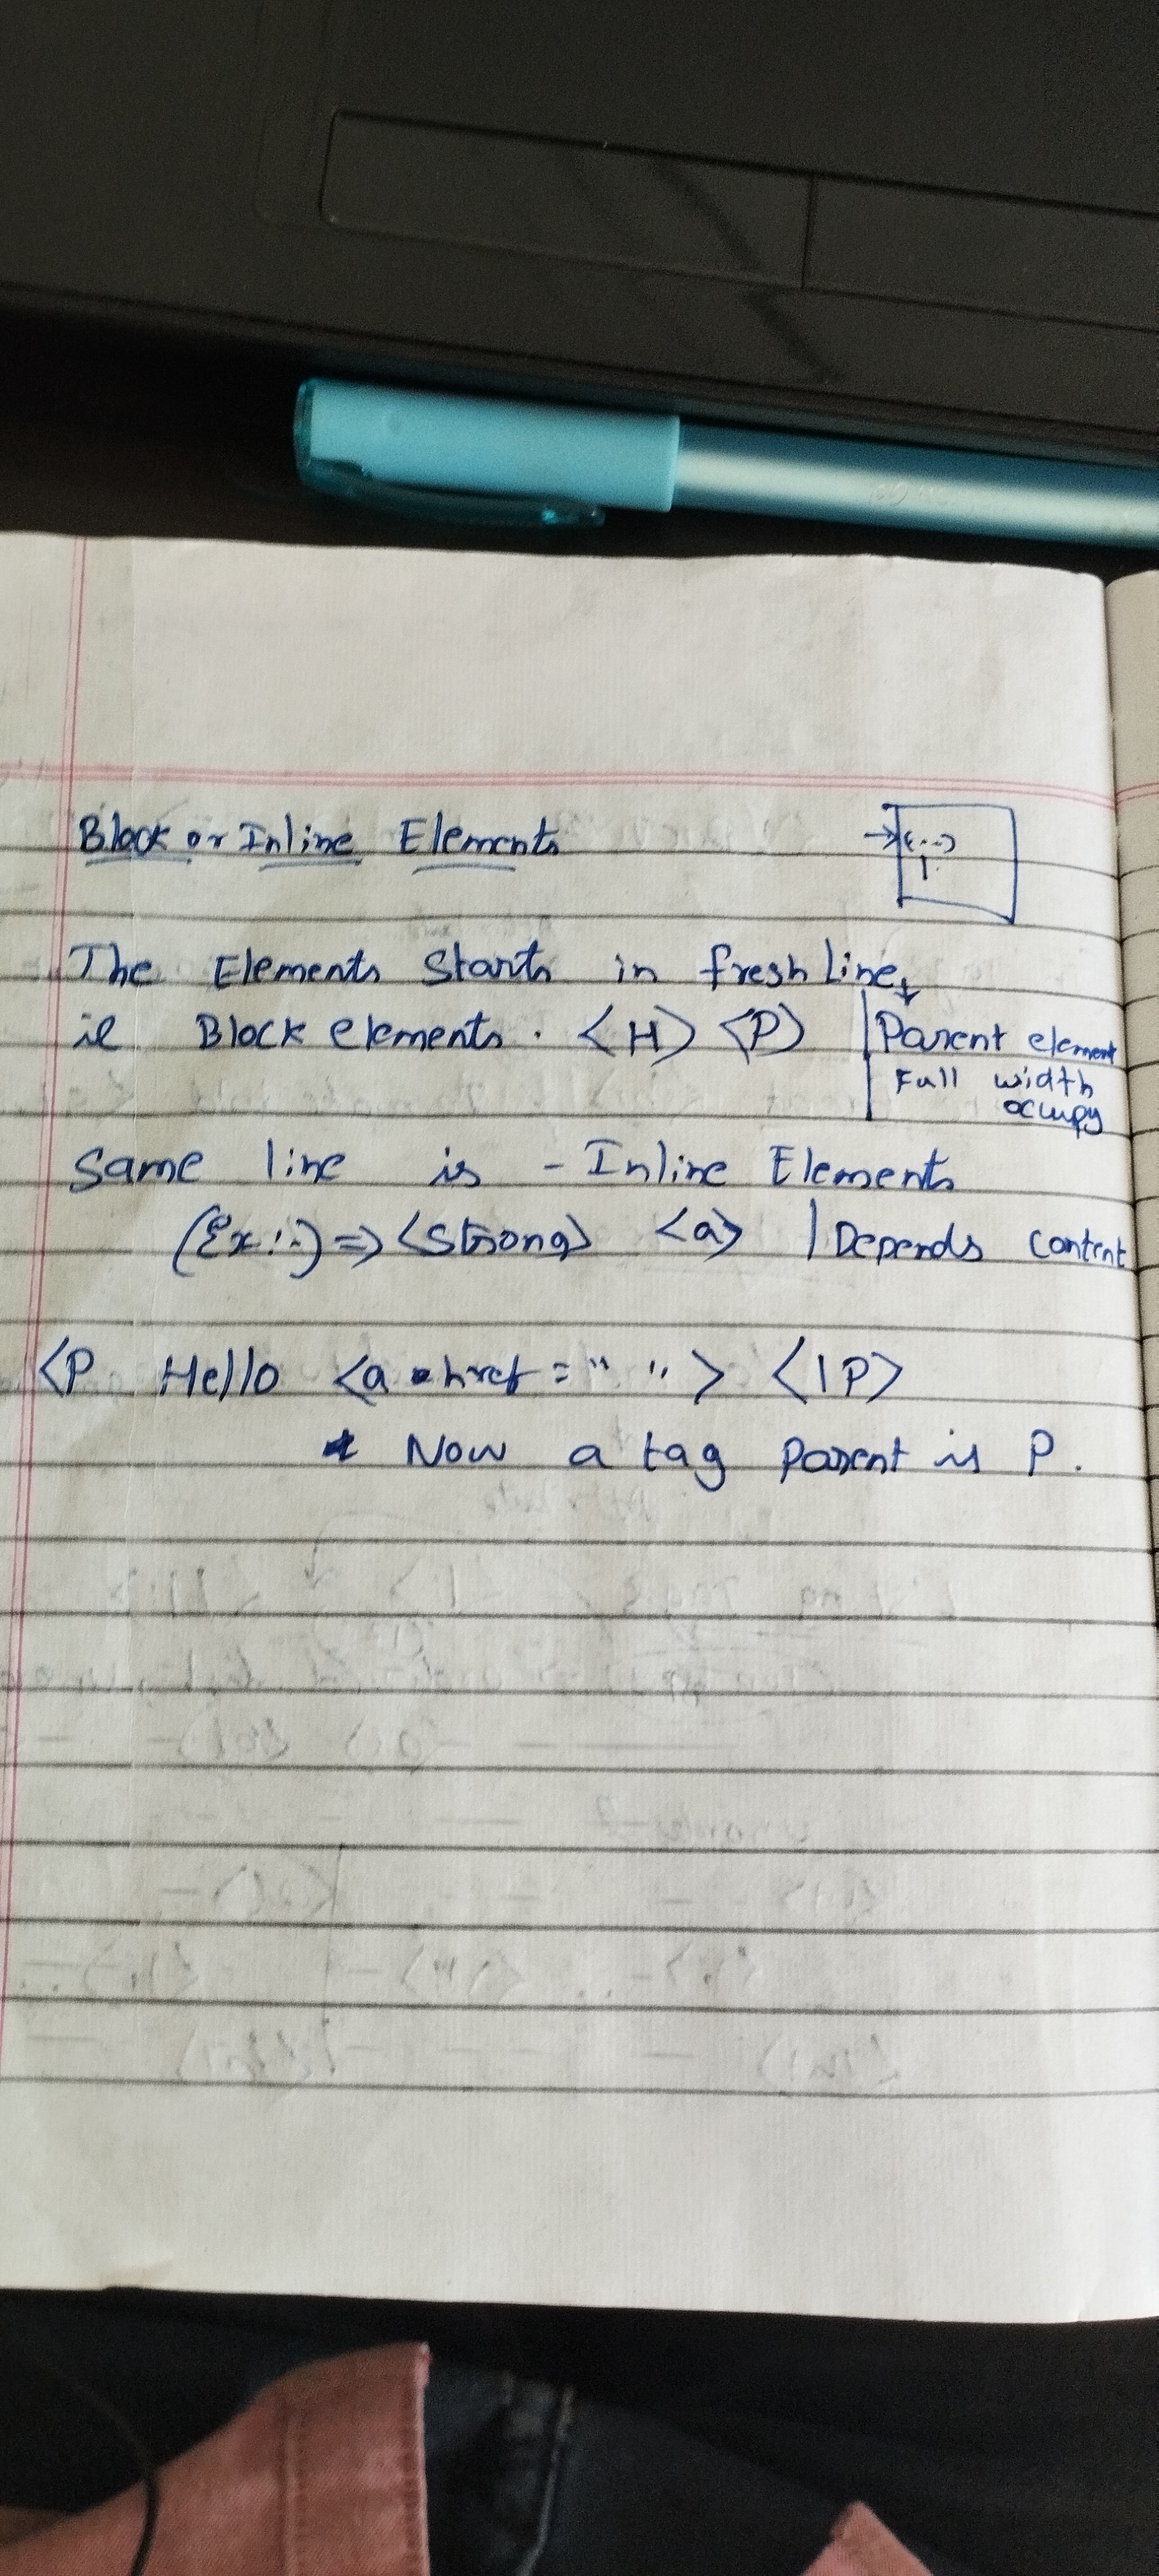 Block or Inline Elements
The Elements Starts in fresh line,
ie Block elements. <H> <P> | Parent element
Full width
ocupy
Same line is - Inline Elements
(Ex:-) => <Strong> <a> | Depends content
<P Hello <a href = " " > <|P>
* Now a tag parent is P.